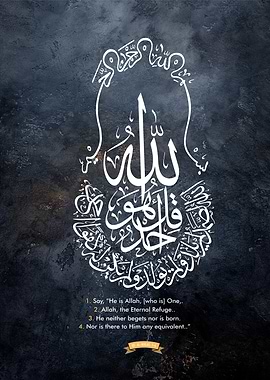 بسم الله الرحمن الرحيم
قل هو الله احد
الله الصمد لم يلد ولم يولد ولم يكن له كفوا احد
1. Say, "He is Allah, [who is] One,.
2. Allah, the Eternal Refuge..
3. He neither begets nor is born.
4. Nor is there to Him any equivalent.."